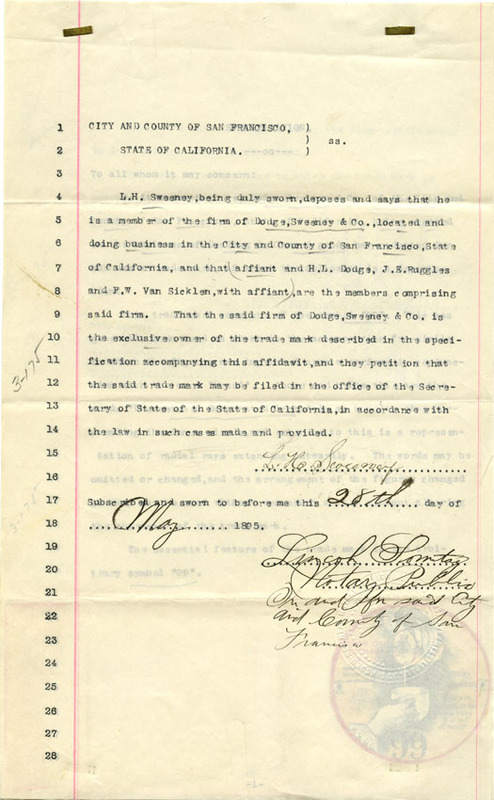 1 CITY AND COUNTY OF SAN FRANCISCO, )
) ss.
2 STATE OF CALIFORNIA. )
3 To all whom it may concern:
4 L.H. Sweeney, being duly sworn, deposes and says that he
5 is a member of the firm of Dodge, Sweeney & Co., located and
6 doing business in the City and County of San Francisco, State
7 of California, and that affiant and H.L. Dodge, J.E. Ruggles
8 and F.W. Van Sicklen, with affiant, are the members comprising
9 said firm. That the said firm of Dodge, Sweeney & Co. is
10 the exclusive owner of the trade mark described in the speci-
11 fication accompanying this affidavit, and they petition that
12 the said trade mark may be filed in the office of the Secre-
13 tary of State of the State of California, in accordance with
14 the law in such cases made and provided.
3-175
15 L.H. Sweeney
16
17 Subscribed and sworn to before me this 28th day of
18 May 1895.
19 Lincoln Sontag
20 Notary Public
21 In and for said City
22 and County of San
23 Francisco
24
25
26
27
28
99
-1-